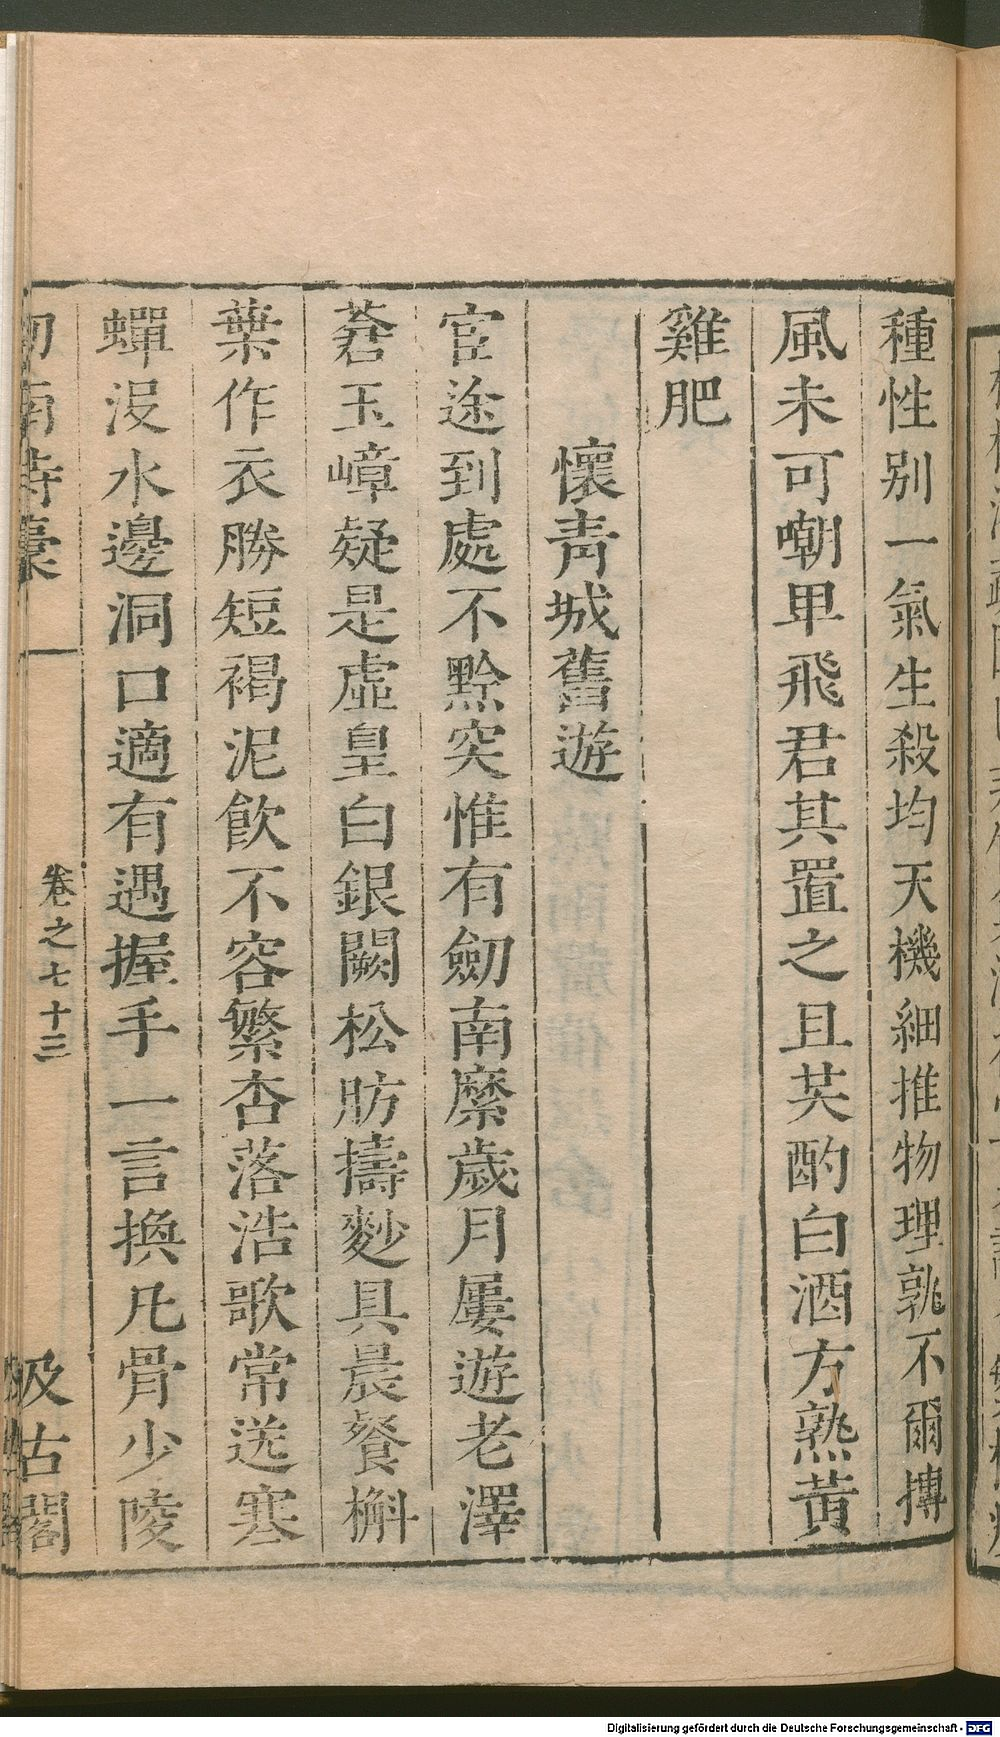 種性别一氣生殺均天機細推物理孰不爾摶
風未可嘲卑飛君其置之且共酌白酒方熟黃
雞肥
懷靑城舊遊
宦途到處不黔突惟有劒南縻歲月屢遊老澤
蒼玉嶂疑是虛皇白銀闕松肪擣麨具晨餐槲
葉作衣勝短褐泥飮不容繁杏落浩歌常送寒
蟬沒水邊洞口適有遇握手一言換凡骨少陵
劒南詩稾
卷之七十三
汲古閣
Digitalisierung gefördert durch die Deutsche Forschungsgemeinschaft - DFG